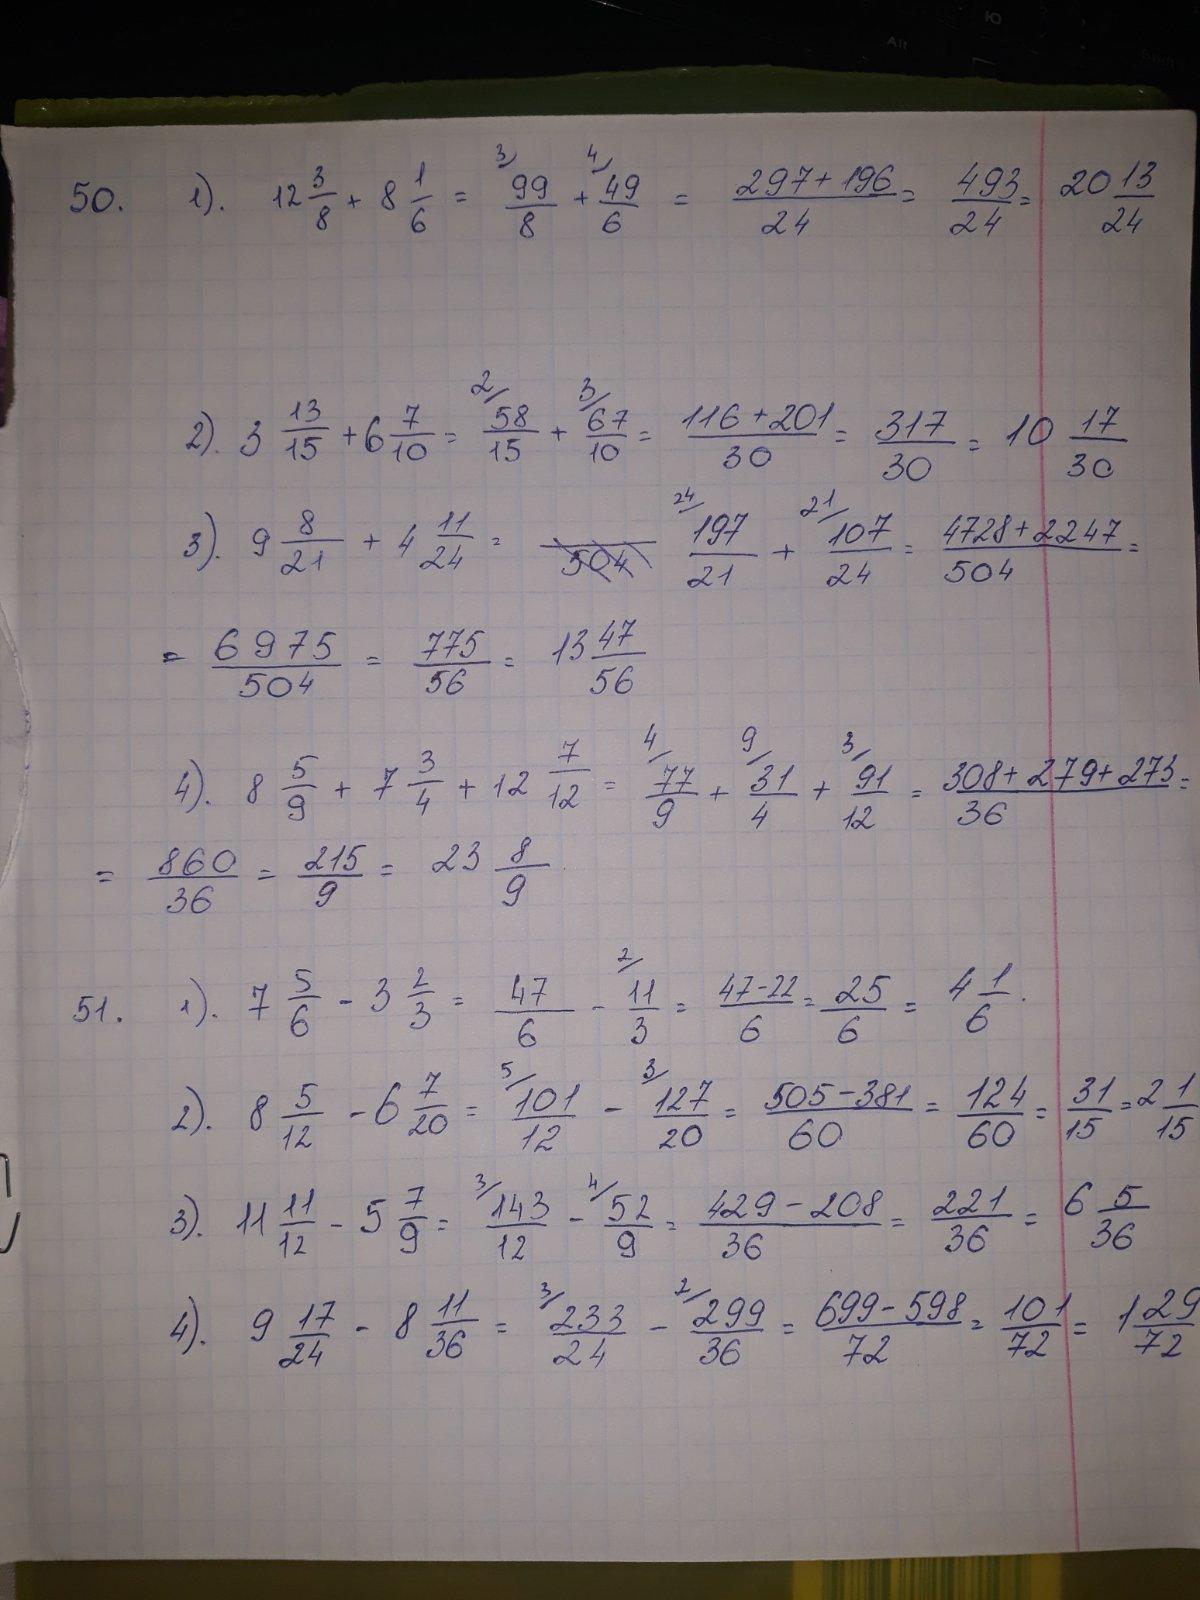 Ю
Alt
50. 1). 12 3/8 + 8 1/6 = 3/ 99/8 + 4/ 49/6 = 297+196/24 = 493/24 = 20 13/24
2). 3 13/15 + 6 7/10 = 2/ 58/15 + 3/ 67/10 = 116+201/30 = 317/30 = 10 17/30
3). 9 8/21 + 4 11/24 = 504 24/ 197/21 + 21/ 107/24 = 4728+2247/504 =
= 6975/504 = 775/56 = 13 47/56
4). 8 5/9 + 7 3/4 + 12 7/12 = 4/ 77/9 + 9/ 31/4 + 3/ 91/12 = 308+279+273/36 =
= 860/36 = 215/9 = 23 8/9
51. 1). 7 5/6 - 3 2/3 = 47/6 - 2/ 11/3 = 47-22/6 = 25/6 = 4 1/6.
2). 8 5/12 - 6 7/20 = 5/ 101/12 - 3/ 127/20 = 505-381/60 = 124/60 = 31/15 = 2 1/15
3). 11 11/12 - 5 7/9 = 3/ 143/12 - 4/ 52/9 = 429-208/36 = 221/36 = 6 5/36
4). 9 17/24 - 8 11/36 = 3/ 233/24 - 2/ 299/36 = 699-598/72 = 101/72 = 1 29/72